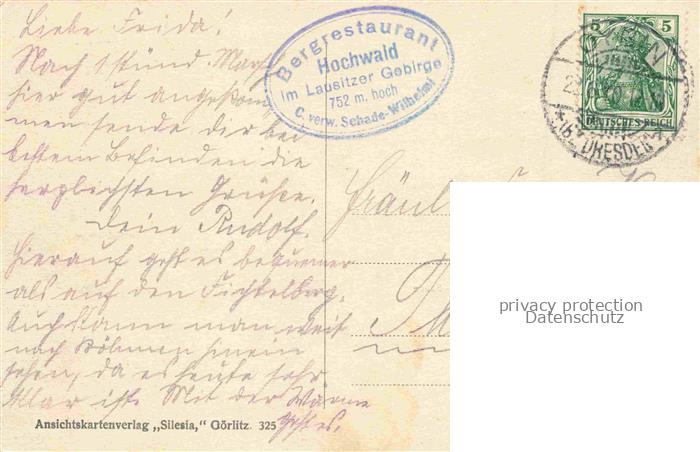 Liebe Frida!
Nach 1 stünd. Marsch
hier gut angekom
men sende dir bei
bestem Befinden die
herzlichsten Grüße.
Dein Rudolf.
Hierauf geht es bequemer
als auf den Fichtelberg.
Auch kann man weit
nach Böhmen hinein
sehen, da es heute sehr
klar ist. Mit der Wärme
geht es.
Ansichtskartenverlag „Silesia," Görlitz. 325
Bergrestaurant
Hochwald
im Lausitzer Gebirge
752 m. hoch
C. verw. Schade-Wilhelmi
5 5
DEUTSCHES REICH
DRESDEN
Fräul
privacy protection
Datenschutz